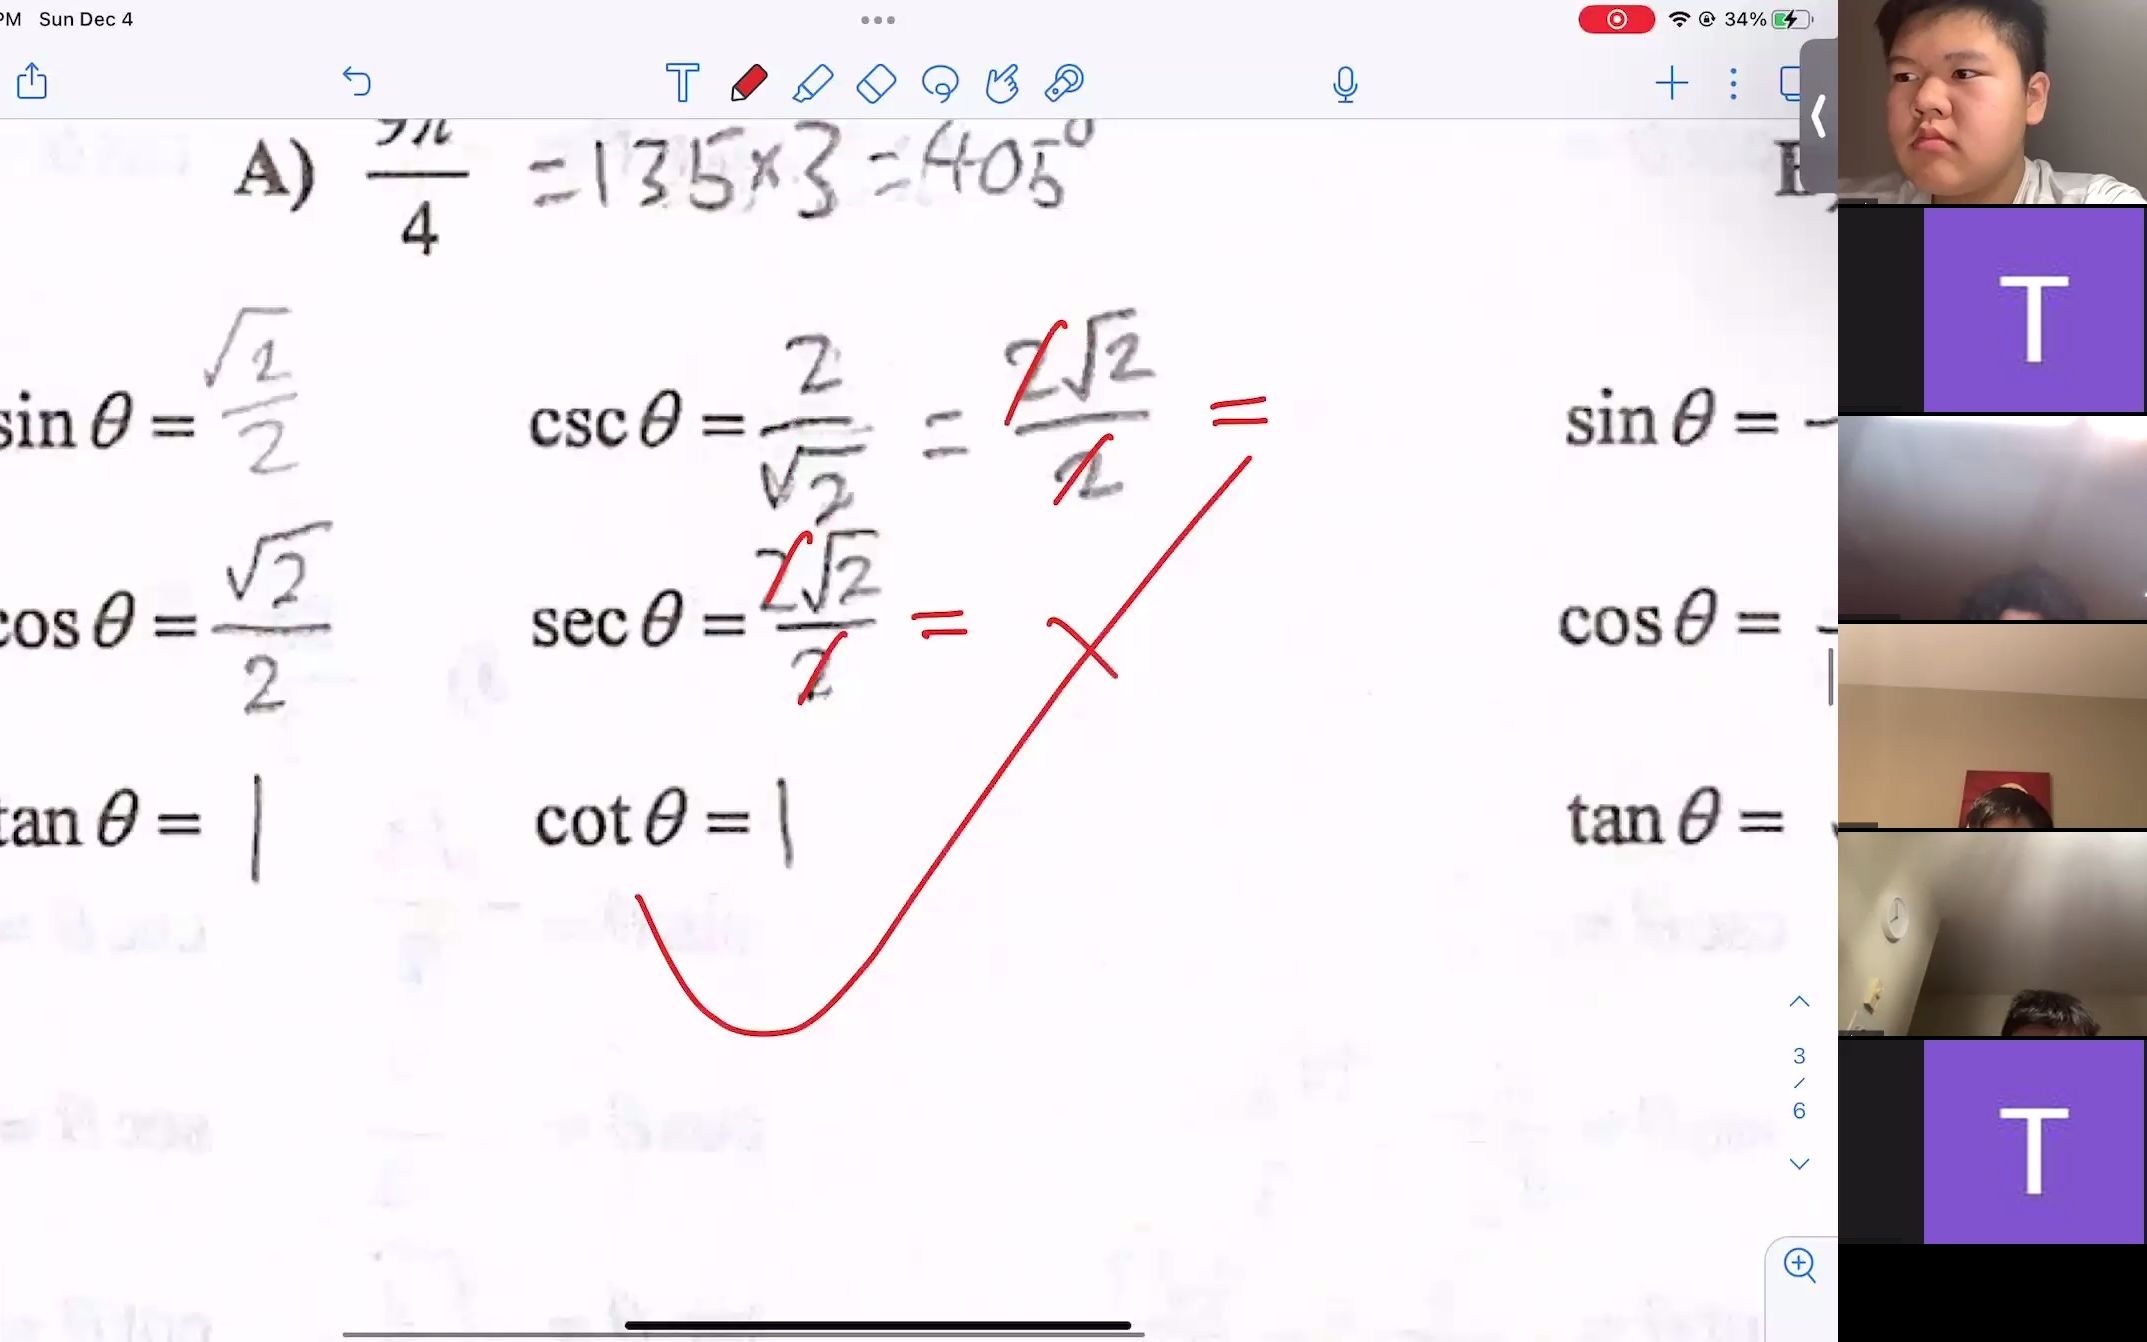 PM Sun Dec 4
34%
A) 9π/4 = 135×3 = 405°
sin θ = √2/2
csc θ = 2/√2 = 2√2/2 =
sin θ =
cos θ = √2/2
sec θ = 2√2/2 =
cos θ =
tan θ = 1
cot θ = 1
tan θ =
3
/
6
T
T